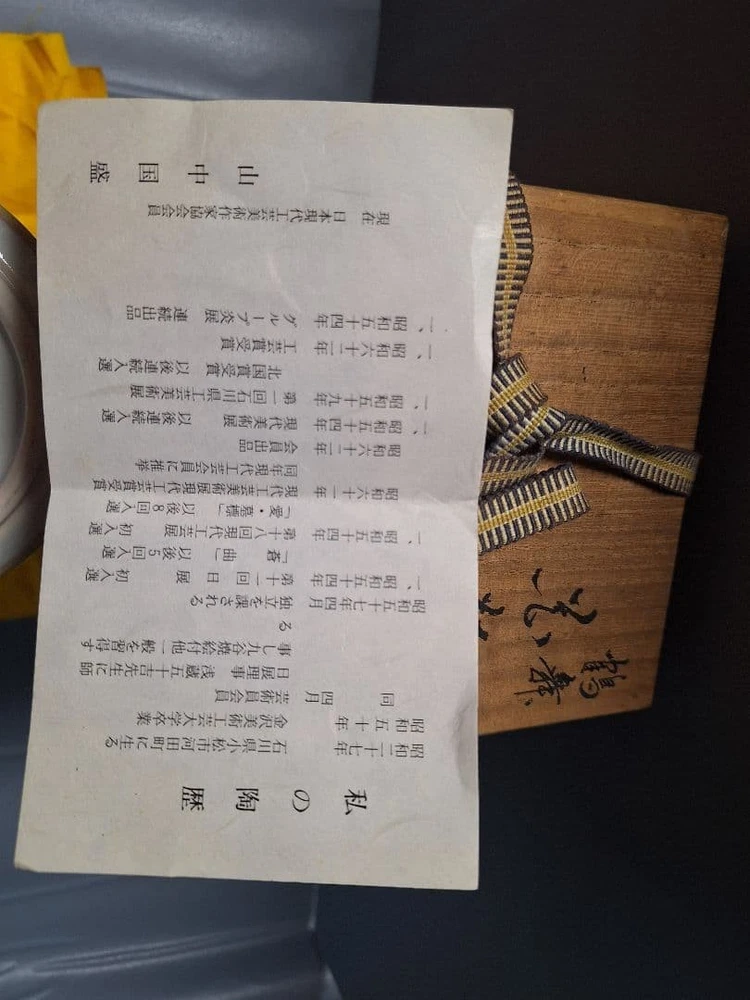 私の陶歴
昭和二十七年 石川県小松市河田町に生る
昭和五十年 金沢美術工芸大学卒業
同 四月 芸術員会員
日展理事 浅蔵五十吉先生に師
事し九谷焼絵付他一般を習得す
る
昭和五十七年四月 独立を課される
一、昭和五十四年 第十一回日展 初入選
「蒼 曲」 以後5回入選
一、昭和五十四年 第十八回現代工芸展 初入選
「愛・墓標」 以後8回入選
昭和六十一年 現代工芸美術展現代工芸賞受賞
同年現代工芸会員に推挙
昭和六十二年 会員出品
一、昭和五十四年 現代美術展 以後連続入選
一、昭和五十九年 第一回石川県工芸美術展
北国賞受賞 以後連続入選
一、昭和六十二年 工芸賞受賞
一、昭和五十四年 グループ炎展 連続出品
現在 日本現代工芸美術作家協会会員
山中国盛